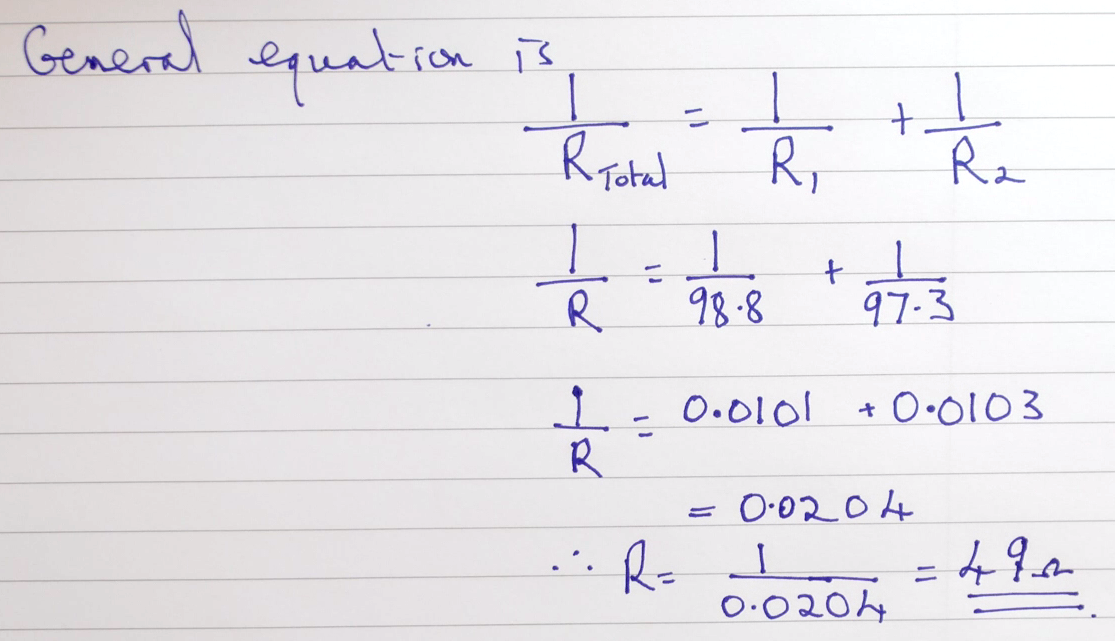 General equation is
1/R Total = 1/R1 + 1/R2
1/R = 1/98.8 + 1/97.3
1/R = 0.0101 + 0.0103
= 0.0204
∴ R = 1/0.0204 = 49Ω.